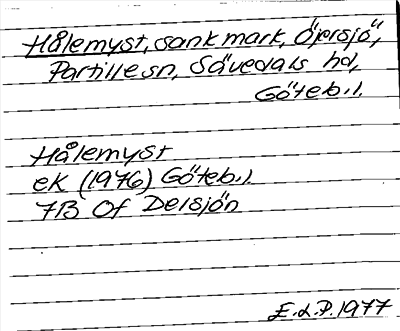 Hålemyst, sank mark, Öjersjö,
Partille sn, Sävedals hd,
Göteb. l.
Hålemyst
ek (1976) Göteb. l.
7B 0f Delsjön
E.L.P. 1977